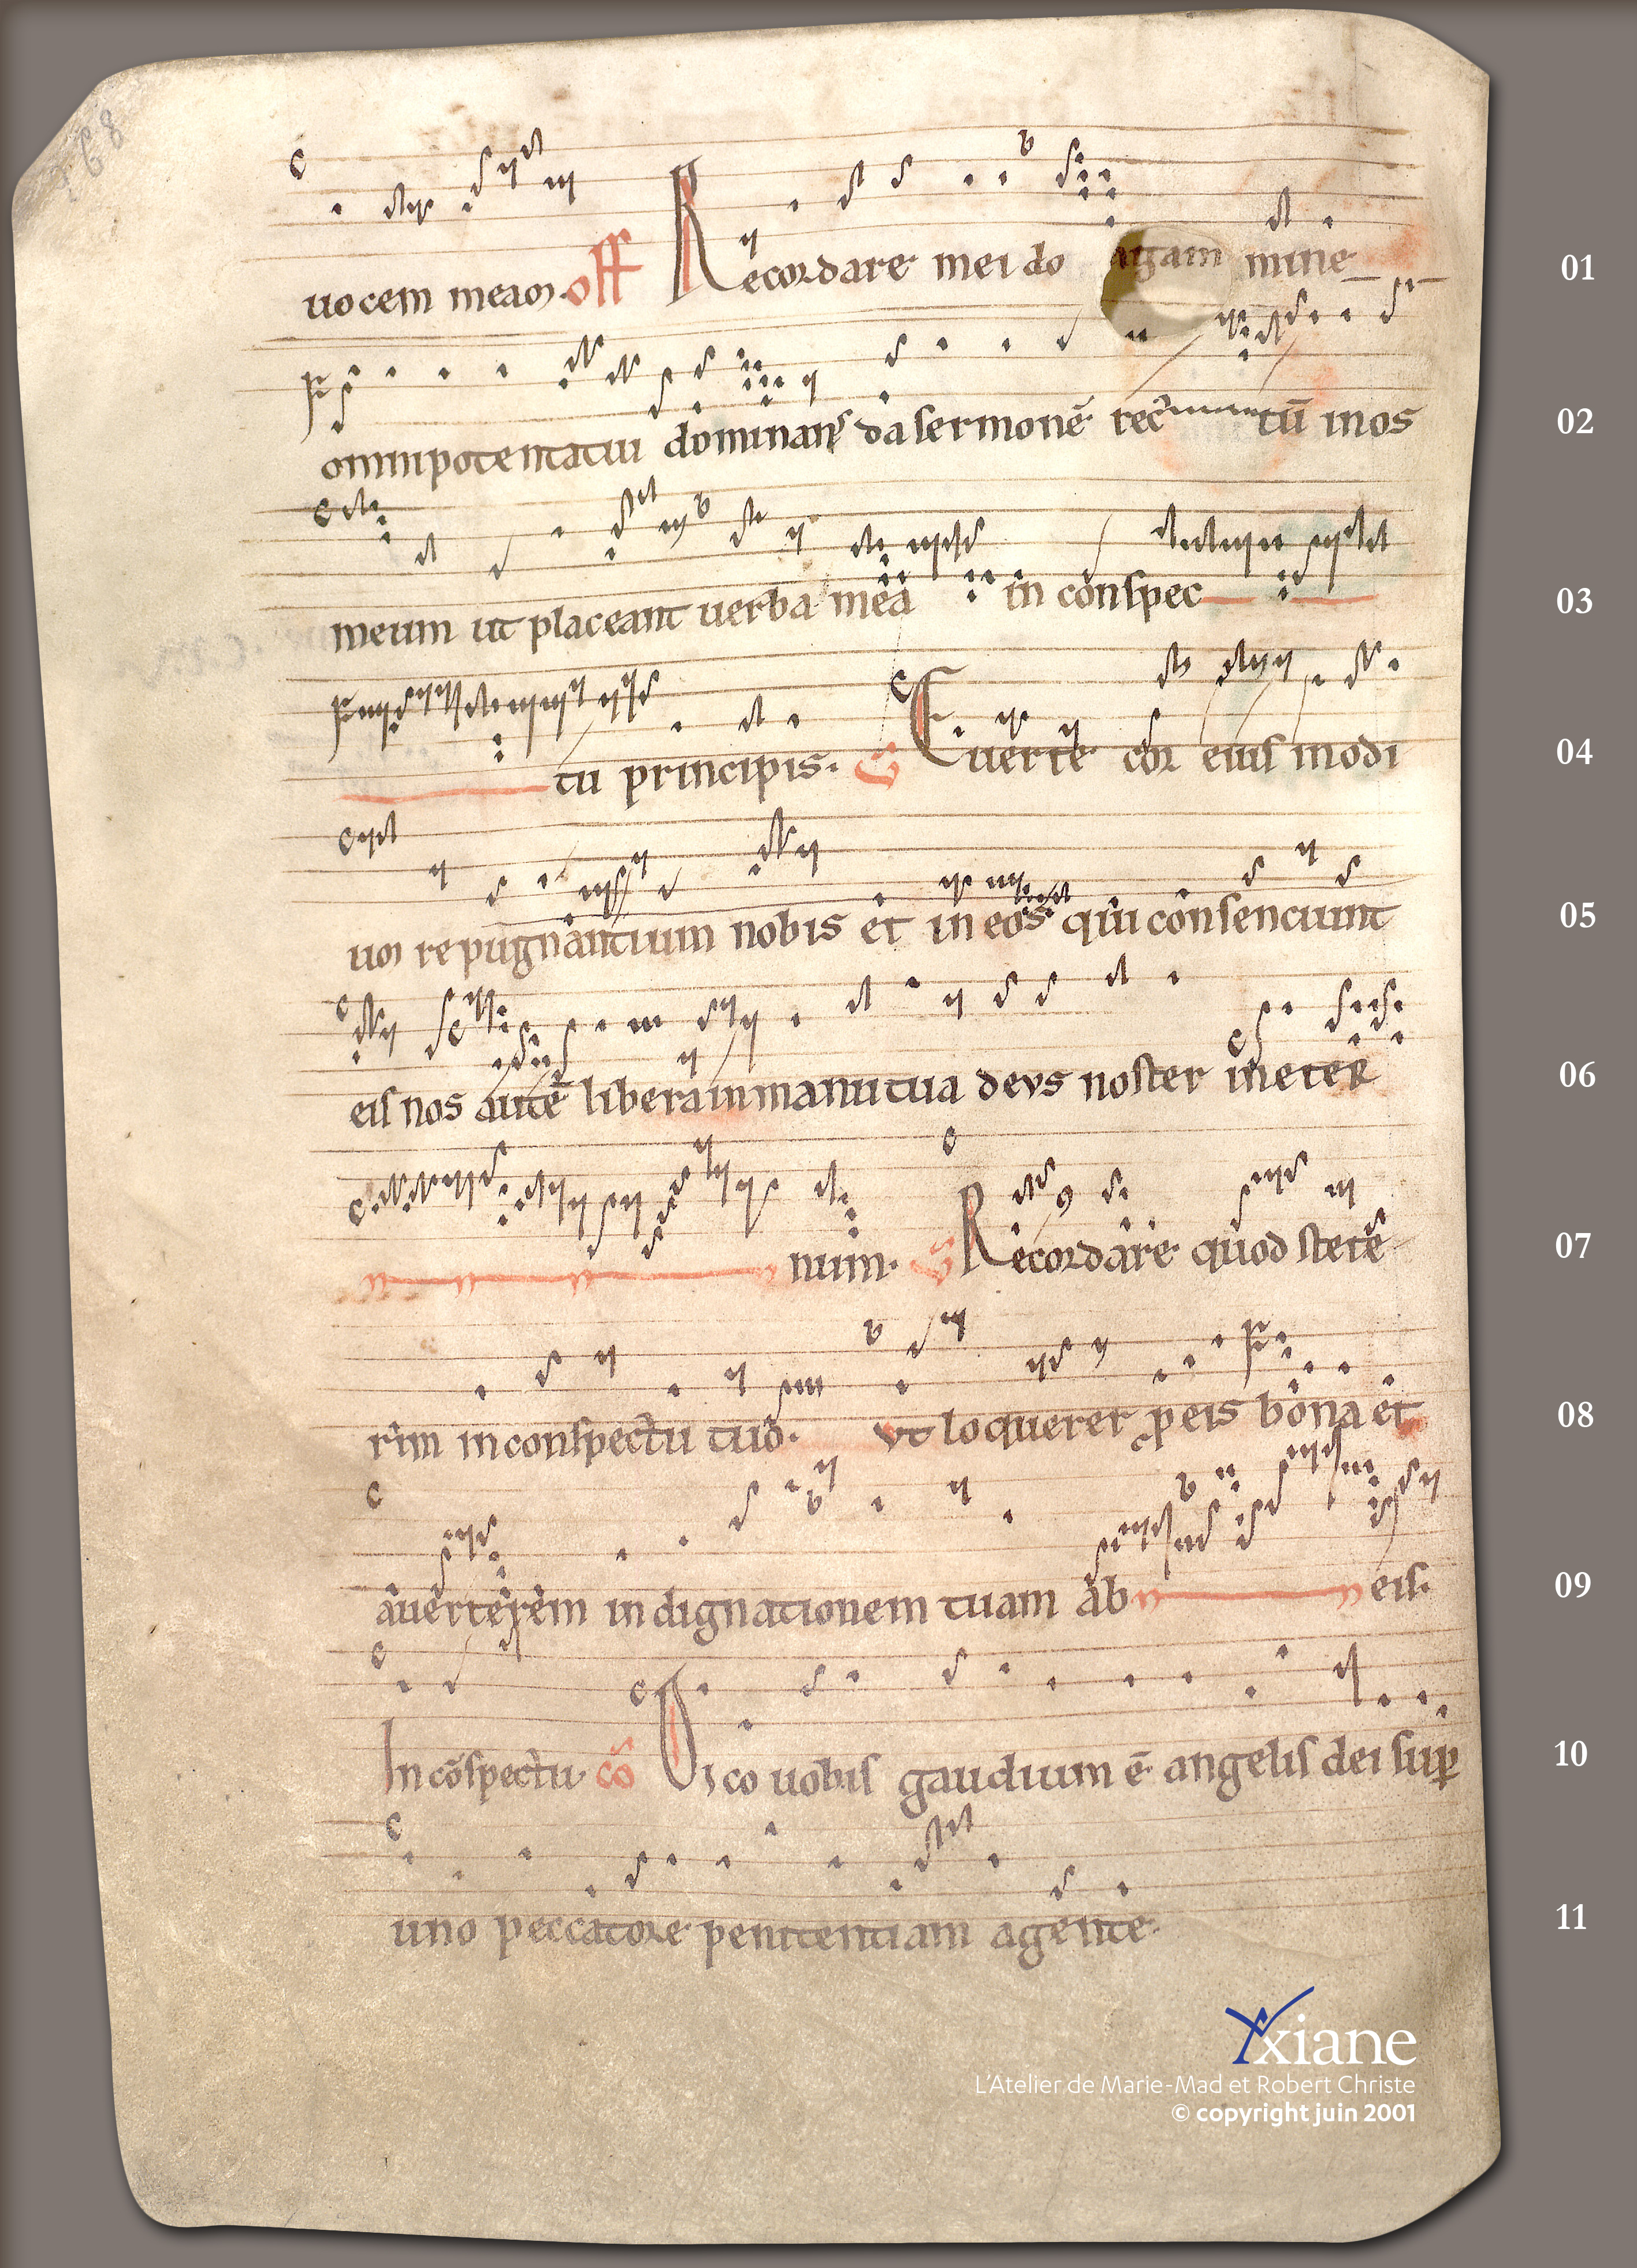 uocem meam. off Recordare mei do mine
omnipotentatui dominans da sermonē rectū in os
meum ut placeant uerba mea in conspec
tu principis. Euerte cor eius inodi
um repugnantium nobis et in eos qui consenciunt
eis nos autē libera in manu tua deus noster in eter
num. Recordare quod stete
rim in conspectu tuo. ut loquerer p eis bona et
auerterem indignationem tuam ab eis.
In cōspectu cō Dico uobis gaudium ē angelis dei sup
uno peccatore penitentiam agente.
01
02
03
04
05
06
07
08
09
10
11
Yxiane
L'Atelier de Marie-Mad et Robert Christe
© copyright juin 2001